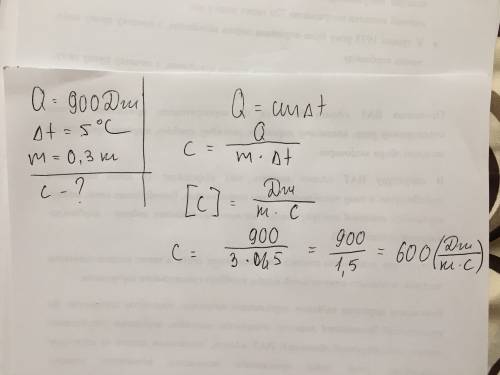 Q = 900 Дж
Δt = 5°C
m = 0,3 кг
c - ?
Q = cmΔt
c = Q / m · Δt
[c] = Дж / кг · C
c = 900 / 3 · 5 = 900 / 1,5 = 600 (Дж / кг · C)